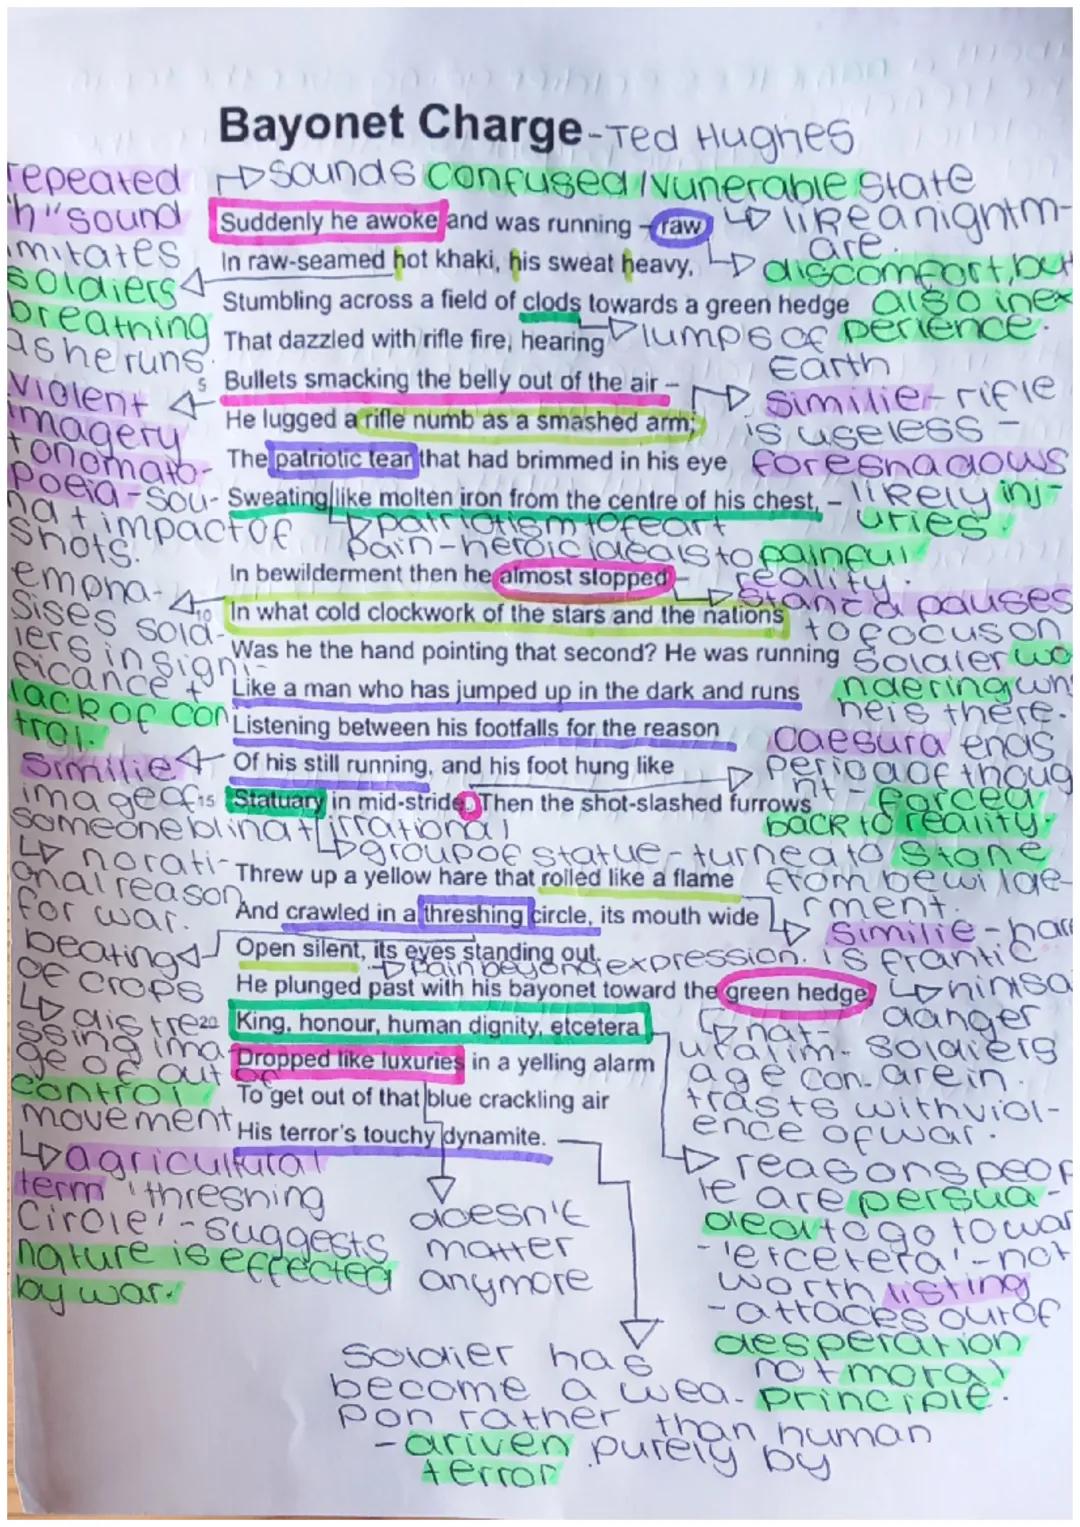 Bayonet Charge - Ted Hughes
repeated
"h" sound
imitates
soldiers
breathing
as he runs.
violent
imagery
+ onomato-
poeia - sou-
nd + impact of
shots.
empha-
sises sold-
iers insigni-
ficance +
lack of con
trol.
Similie
image of
someone blind + irrational
norati-
onal reason
for war.
beating
of crops
distre
ssing ima-
ge of out of
control
movement
agricultural
term 'threshing
Circle' - suggests
nature is effected
by war.
sounds confused/vunerable state
Suddenly he awoke and was running – raw
In raw-seamed hot khaki, his sweat heavy,
Stumbling across a field of clods towards a green hedge
That dazzled with rifle fire, hearing
5 Bullets smacking the belly out of the air –
He lugged a rifle numb as a smashed arm;
The patriotic tear that had brimmed in his eye
Sweating like molten iron from the centre of his chest, –
patriotism to fear +
pain - heroic ideals to painful
reality.
In bewilderment then he almost stopped –
10 In what cold clockwork of the stars and the nations
Was he the hand pointing that second? He was running
Like a man who has jumped up in the dark and runs
Listening between his footfalls for the reason
Of his still running, and his foot hung like
15 Statuary in mid-stride. Then the shot-slashed furrows
group of statue - turned to stone
from bewilde-
rment.
Threw up a yellow hare that rolled like a flame
And crawled in a threshing circle, its mouth wide
Open silent, its eyes standing out.
pain beyond expression.
He plunged past with his bayonet toward the green hedge,
20 King, honour, human dignity, etcetera
Dropped like luxuries in a yelling alarm
To get out of that blue crackling air
His terror's touchy dynamite.
like a nightm-
are.
discomfort, but
also inex
perience.
lumps of
Earth
Similie - rifle
is useless -
foreshadows
likely inj-
uries
Stanza pauses
to focus on
Soldier wo
ndering wh
he is there.
caesura ends
period of thoug
nt - forced
back to reality.
Similie - har
is frantic
hints a
danger
soldiers
are in.
nat-
ural im-
age con-
trasts with viol-
ence of war.
reasons peop
le are persua-
ded to go to war
- 'etcetera' - not
worth listing
- attaces out of
desperation
not moral
principle.
doesn't
matter
anymore
Soldier has
become a wea-
pon rather than human
- driven purely by
terror